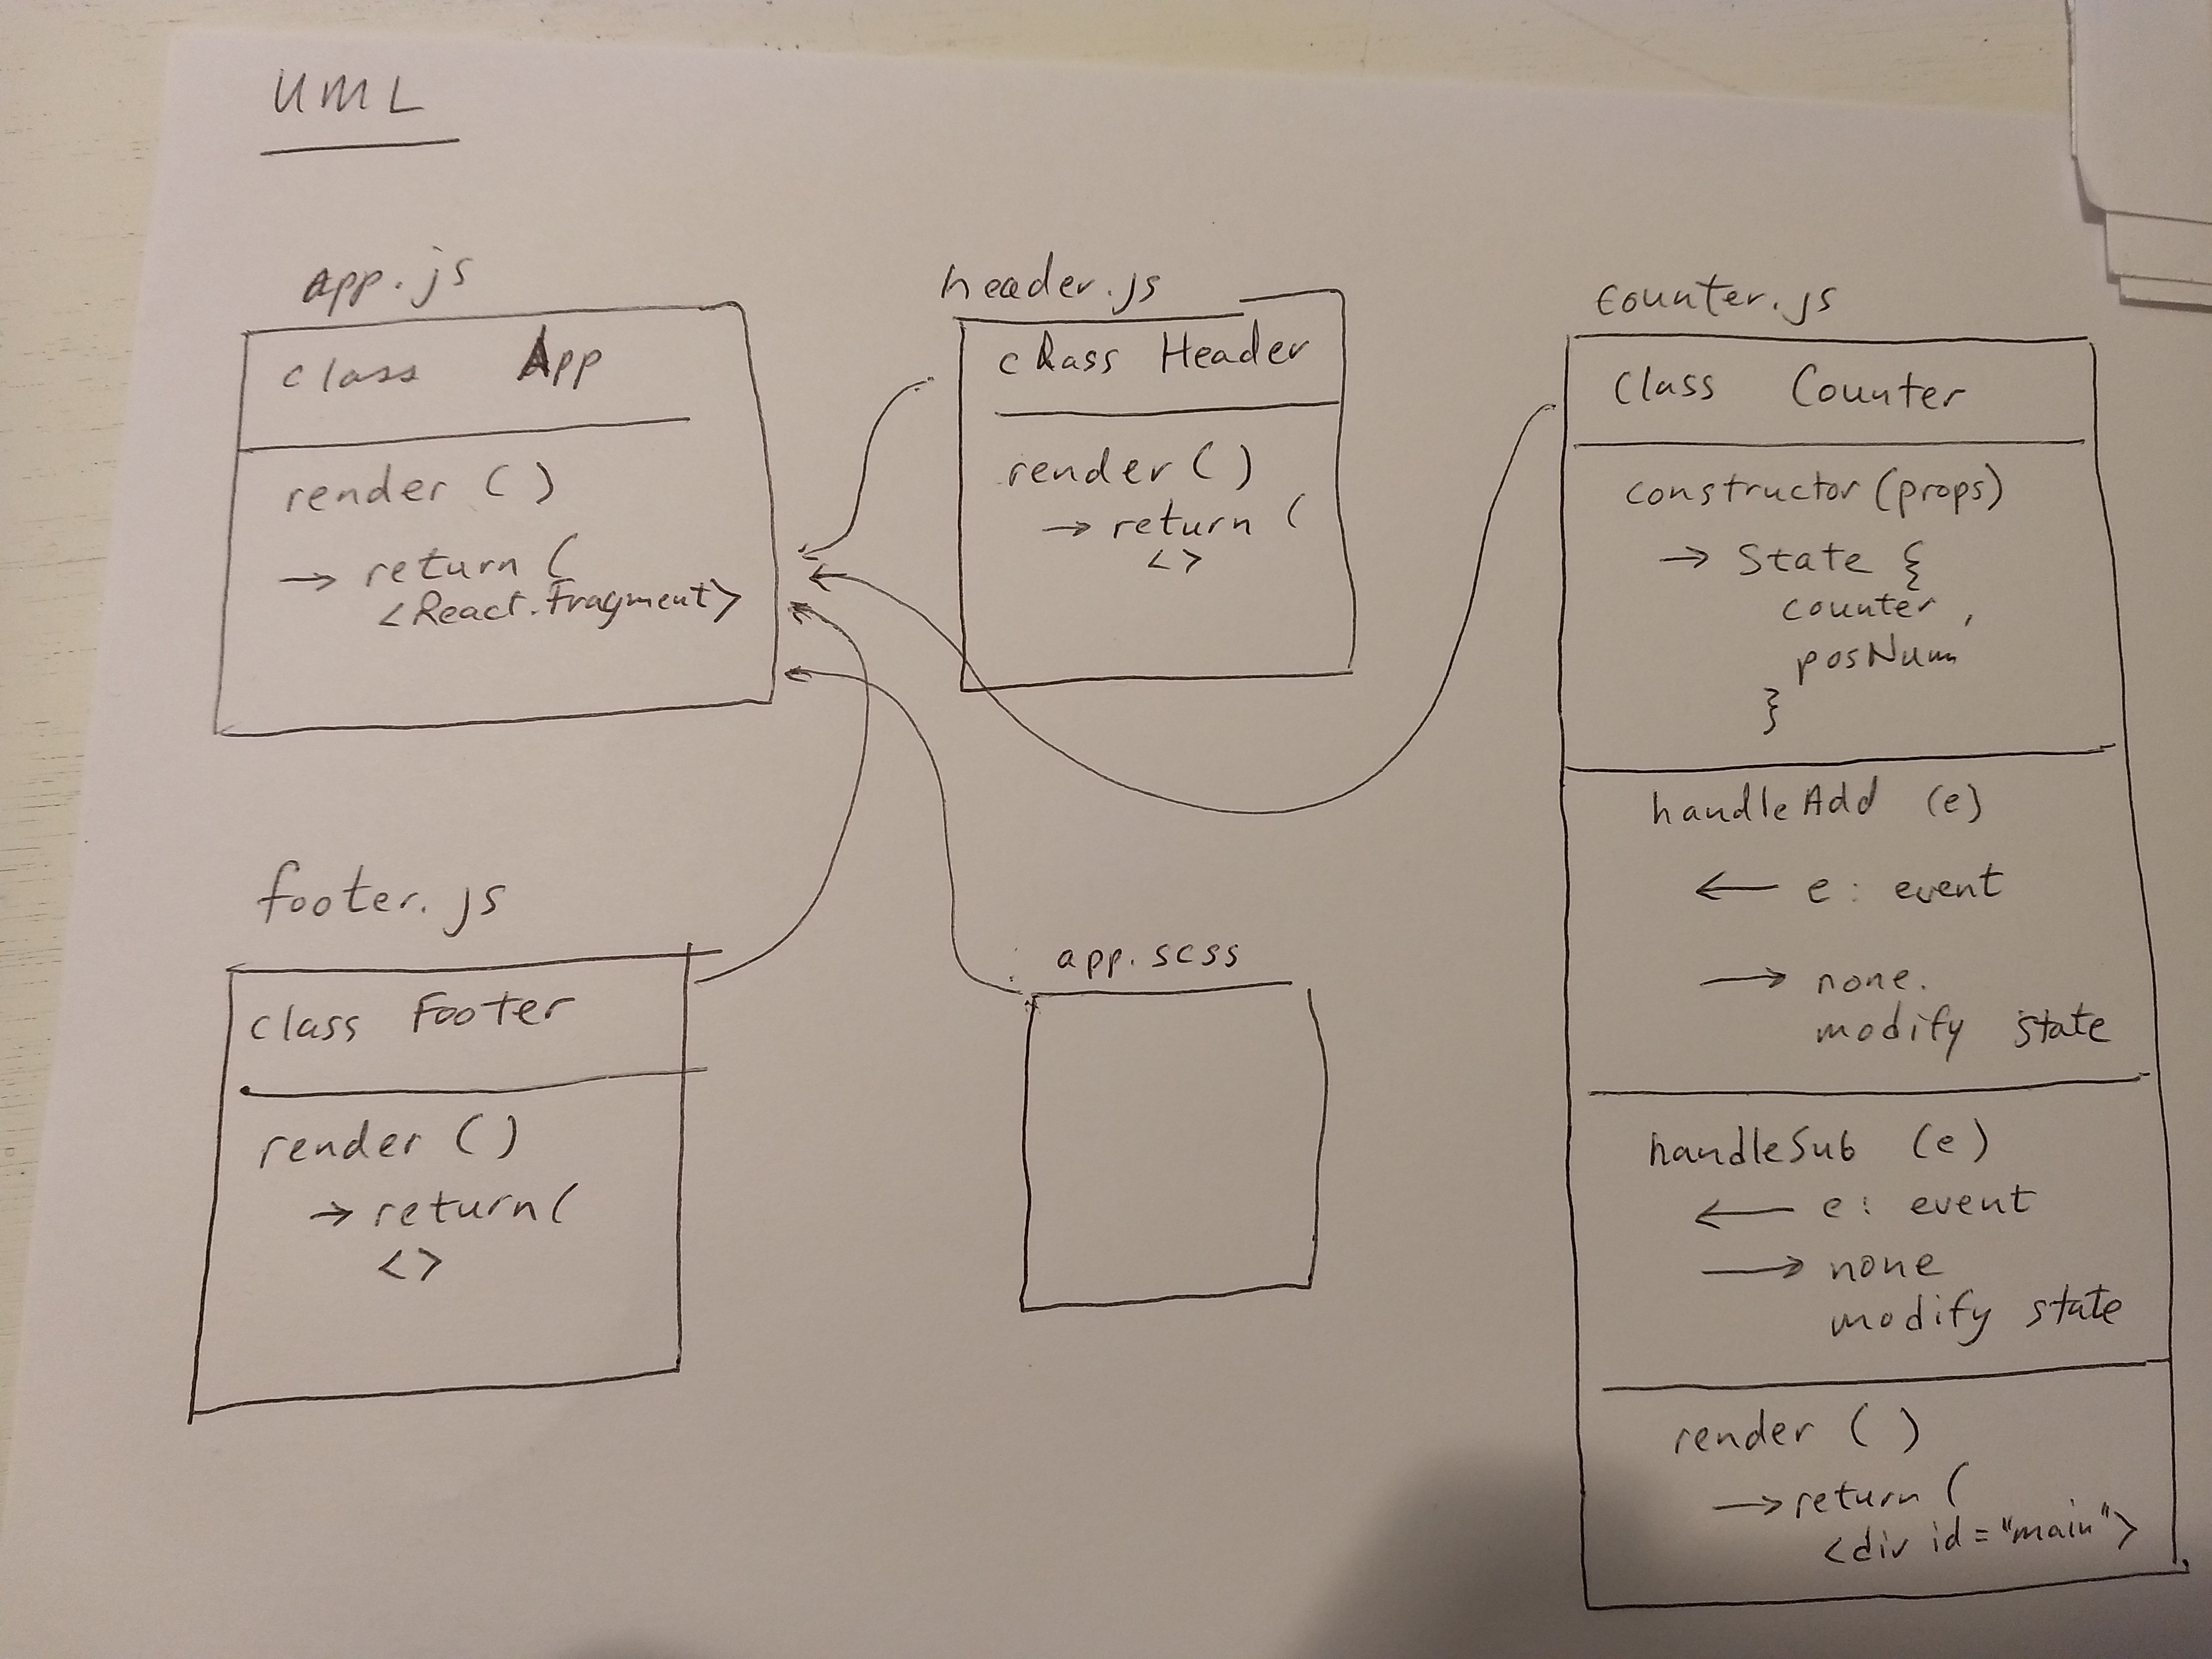 UML
app.js
class App
render ()
→ return (
<React.Fragment>
header.js
class Header
render ()
→ return (
<>
counter.js
class Counter
constructor (props)
→ State {
counter,
posNum
}
handleAdd (e)
← e: event
→ none.
modify state
handleSub (e)
← e: event
→ none
modify state
render ()
→ return (
<div id = "main">
footer.js
class Footer
render ()
→ return (
<>
app.scss